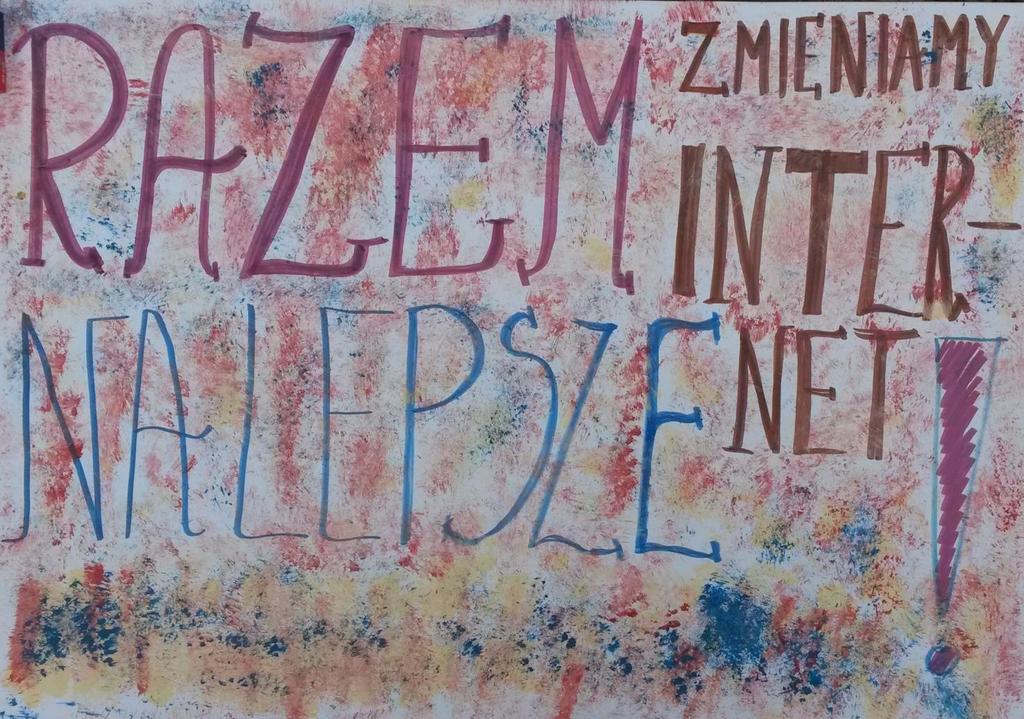 RAZEM
ZMIENIAMY
INTER-
NET
NA LEPSZE!